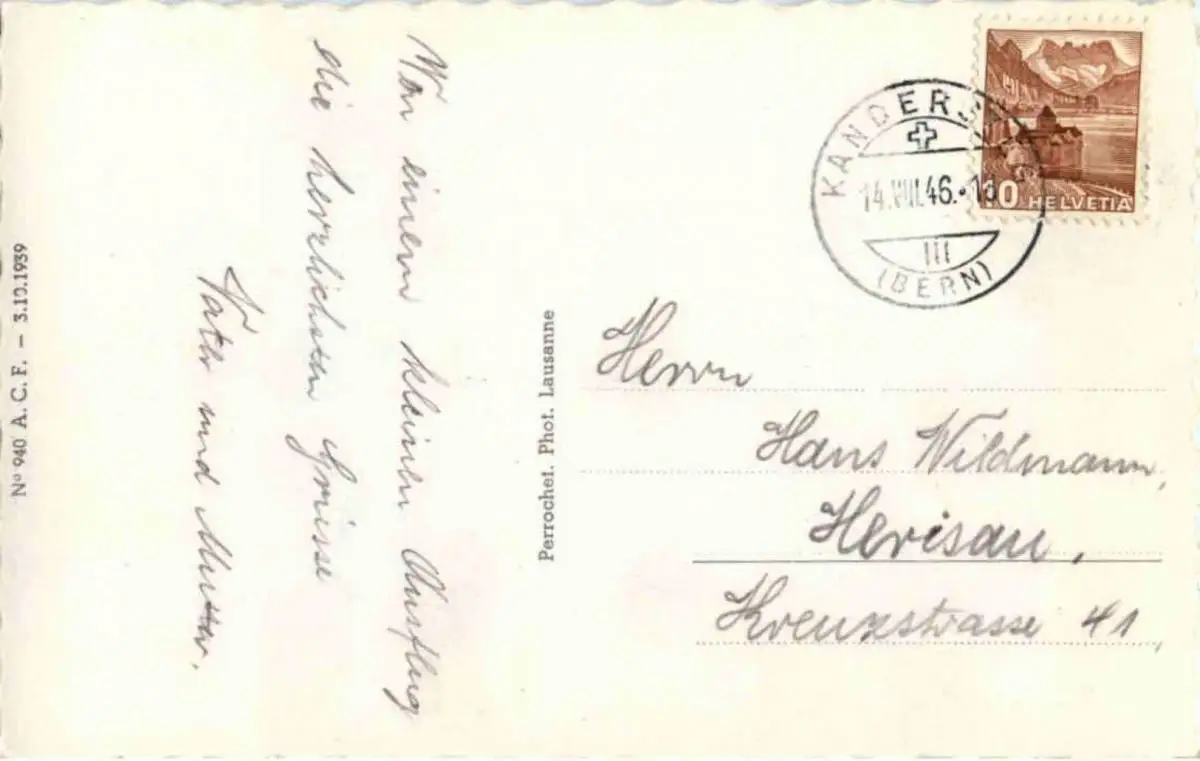 Von einem kleinen Ausflug
die herzlichsten Grüsse
Vater und Mutter.
Nº 940 A. C. F. — 3.10.1939
Perrochet. Phot. Lausanne
KANDERS
14.VIII.46.
III
(BERN)
10 HELVETIA
Herrn
Hans Wildmann,
Herisau,
Kreuzstrasse 41